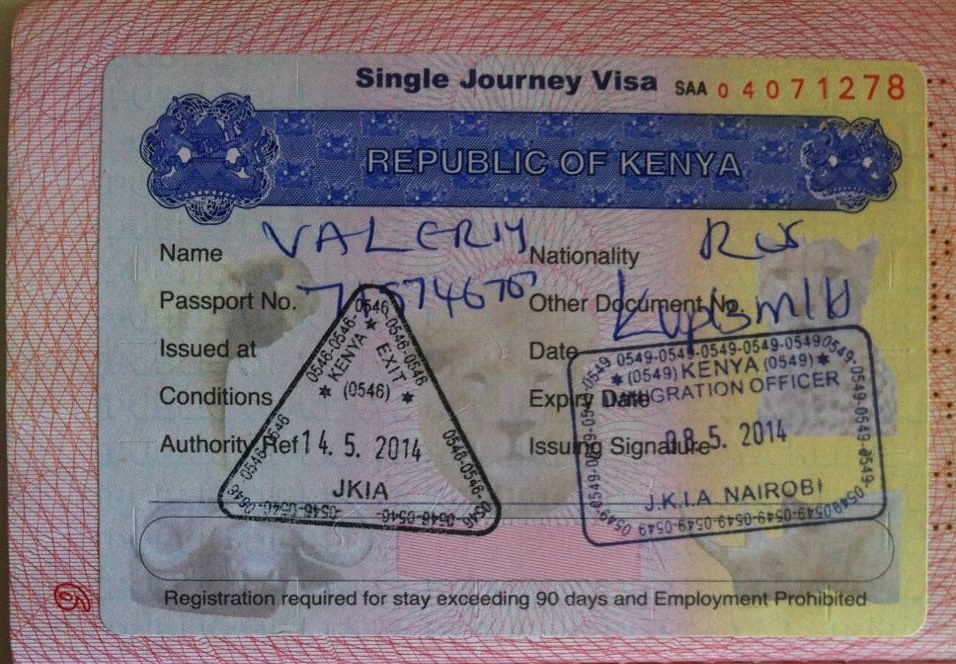 Single Journey Visa SAA 04071278
REPUBLIC OF KENYA
Name VALERIY Nationality Rus
Passport No. Other Document No.
Issued at Date
Conditions Expiry Date
Authority Ref Issuing Signature
0546-0546-0546
KENYA EXIT
★ (0546) ★
14. 5. 2014
JKIA
0549-0549-0549-0549-0549
★ (0549) KENYA (0549) ★
IMMIGRATION OFFICER
08. 5. 2014
J.K.I.A NAIROBI
Registration required for stay exceeding 90 days and Employment Prohibited
9